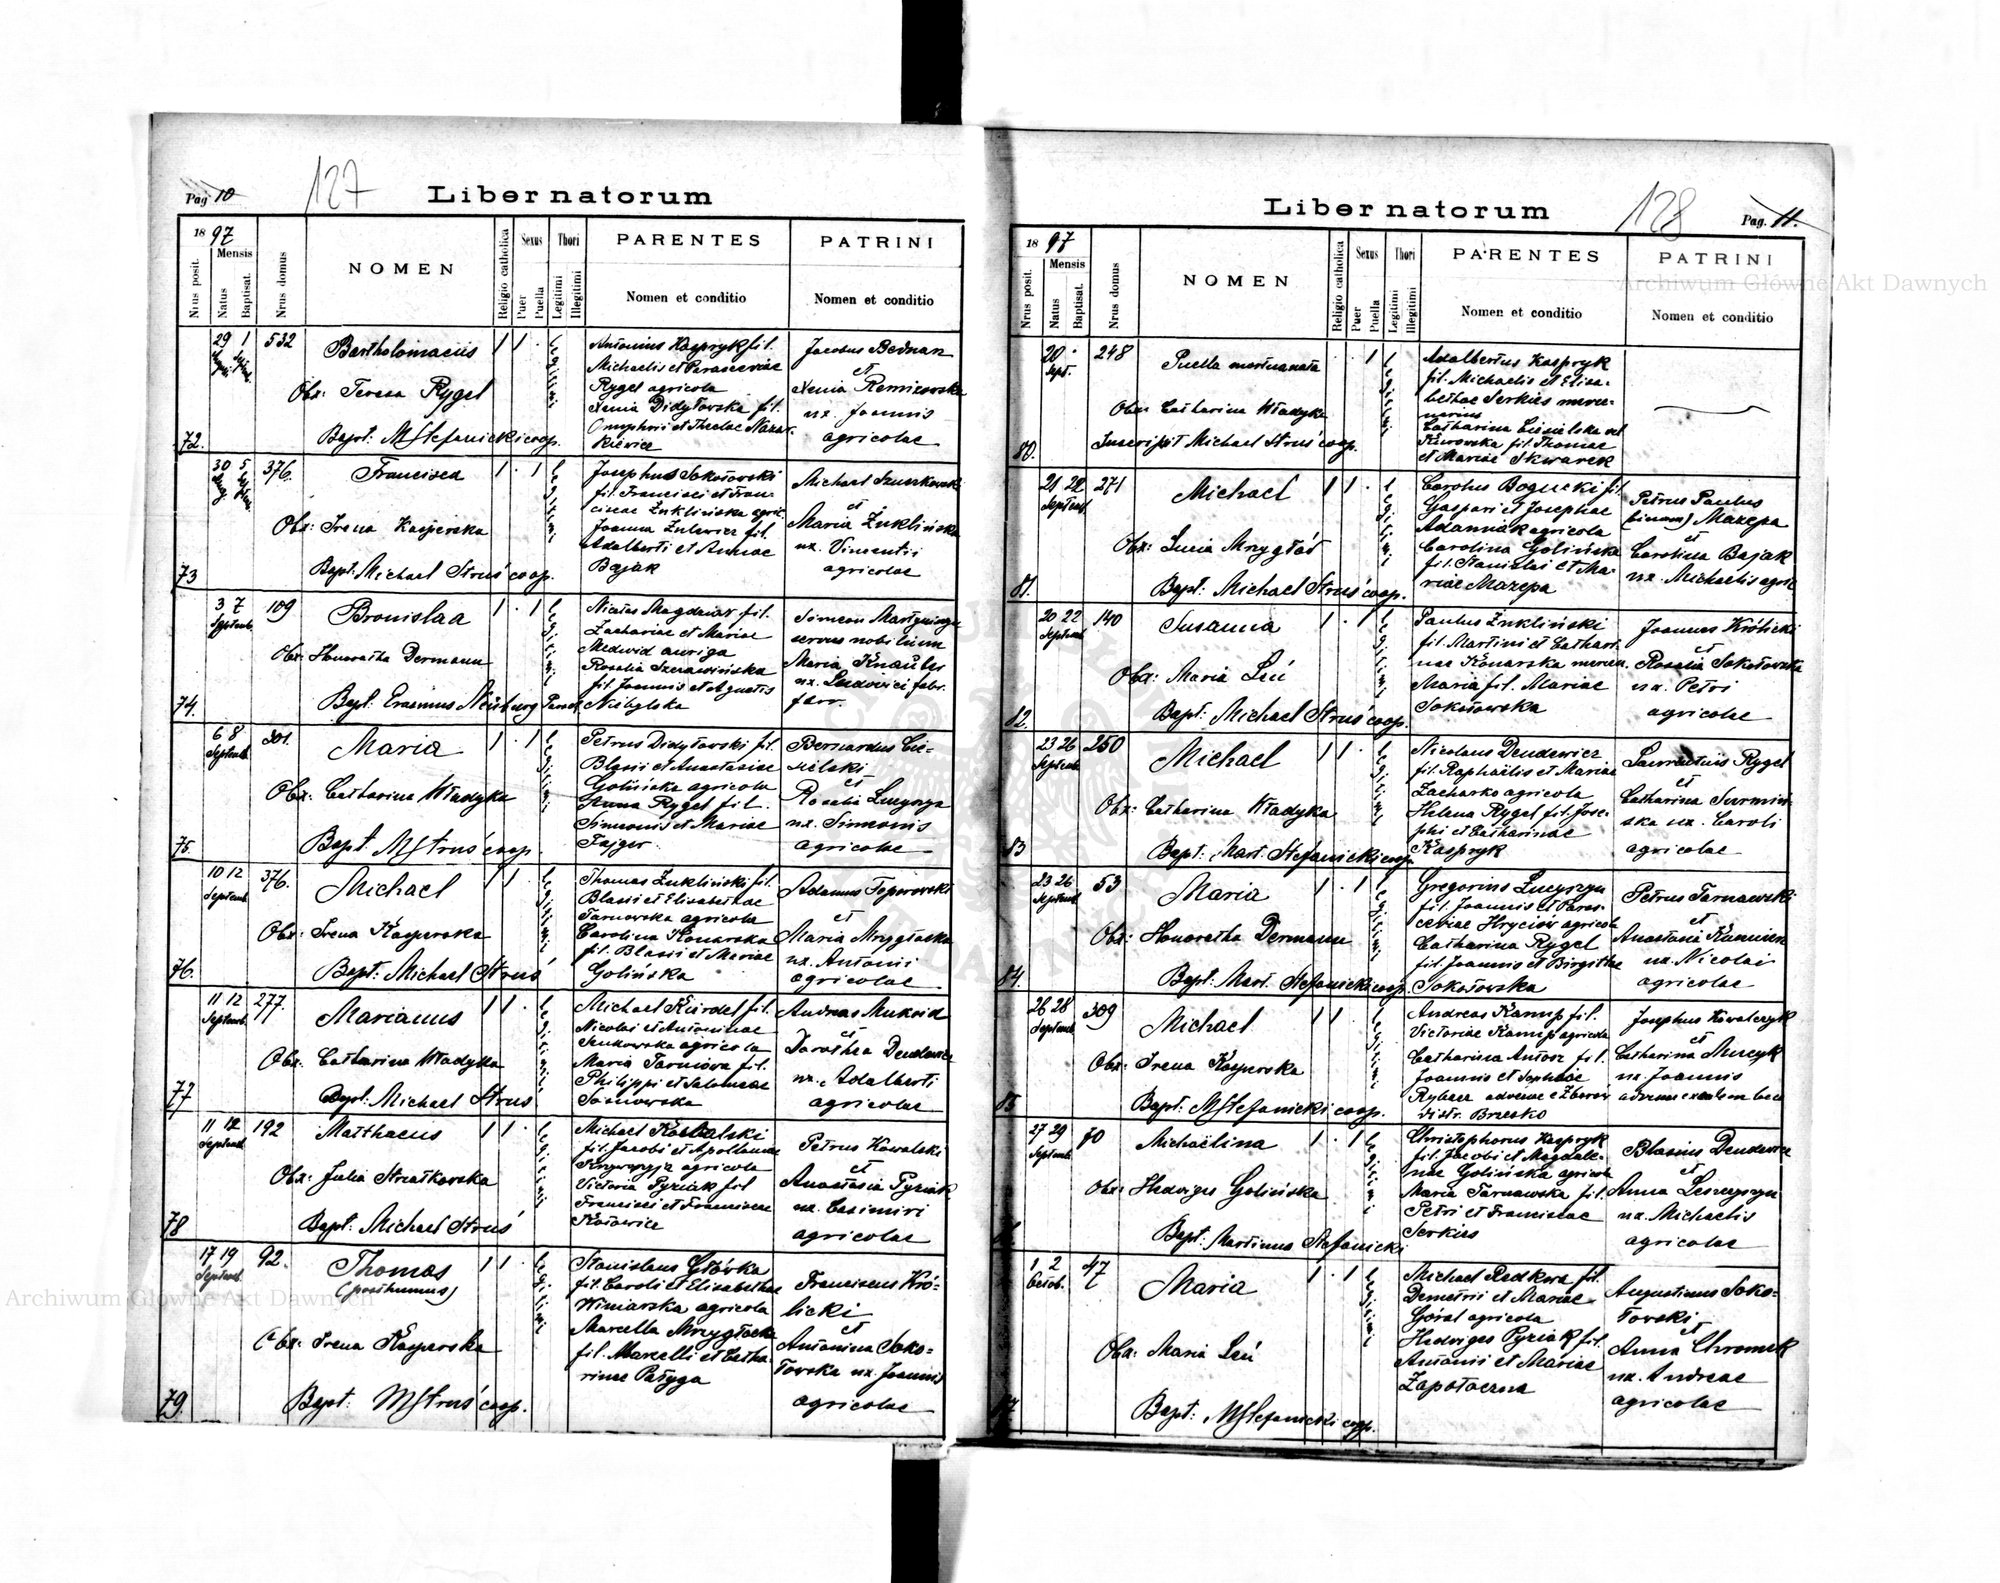 Pag 10
127
Liber natorum
1897
Nrus posit.
Mensis
Natus
Baptisat.
Nrus domus
NOMEN
Religio catholica
Sexus
Puer
Puella
Thori
Legitimi
Illegitimi
PARENTES
Nomen et conditio
PATRINI
Nomen et conditio
72.
29 1
532
Bartholomaeus
Obx: Teresa Rygel
Bapt: MStefanicki coop.
Antonius Kaspryk fil.
Michaelis et Parasceviae
Rygel agricola
Xenia Didyłowska fil.
Onuphrii et Theclae Nazar-
kiewicz
Jacobus Bednarz
et
Xenia Remizowska
ux. Joannis
agricolae
73
30 5
376.
Francisca
Obx: Irena Kasperska
Bapt: Michael Struś coop.
Josephus Sokołowski
fil. Francisci et Fran-
ciscae Żuklińska agric.
Joanna Zulewicz fil.
Adalberti et Annae
Bajak
Michael
et
Maria Żuklińska
ux. Vincentii
agricolae
74.
3 7
Septemb.
109
Bronislaa
Obx: Honoratha Dermann
Bapt. Erasmus Neuburg
fil.
Zachariae et Mariae
Medwid auriga
Rosalia
fil. Joannis et Agnetis
Simeon
servus nobilium
Maria Knauber
ux. Ludovici fabr.
ferr.
75.
6 8
Septemb.
301.
Maria
Obx: Catharina Władyka
Bapt. MStruś coop.
Petrus Didyłowski fil.
Blasii et Anastasiae
Golińska agricola
Anna Rygel fil.
Simeonis et Mariae
Fajger
Bernardus Cie-
sielski
et
Rosalia Łucyszyn
ux. Simeonis
agricolae
76.
10 12
Septemb.
376.
Michael
Obx: Irena Kasperska
Bapt: Michael Struś
Thomas Żukliński fil.
Blasii et Elisabethae
Tarnowska agricola
Carolina Konarska
fil. Blasii et Mariae
Golińska
Adamus Toporowski
et
Maria Mrzygłocka
ux. Antonii
agricolae
77
11 12
Septemb.
277.
Marianus
Obx. Catharina Władyka
Bapt: Michael Struś
Michael Kindel fil.
Nicolai et Antoninae
Senkowska agricola
Maria Tarniowa fil.
Philippi et Salomeae
Sosnowska
Andreas Mukoid
et
Dorothea Dendewicz
ux. Adalberti
agricolae
78
11 12
Septemb.
192
Matthaeus
Obx: Julia Striatkowska
Bapt: Michael Struś
Michael Kowalski
fil. Jacobi et Apolloniae
agricola
Victoria Pyziak fil
Francisci et Franciscae
Kotowicz
Petrus Kowalski
et
Anastasia Pyziak
ux. Casimiri
agricolae
79.
17 19
Septemb.
92.
Thomas
(posthumus)
Obx: Irena Kasperska
Bapt: MStruś coop.
Stanislaus Główka
fil. Caroli et Elisabethae
Winiarska agricola
Marcella Mrzygłocka
fil. Marcelli et Catha-
rinae Pałyga
Franciscus Kró-
licki
et
Antonina Soko-
łowska ux. Joannis
agricolae
Liber natorum
128
Pag. 11.
1897
Nrus posit.
Mensis
Natus
Baptisat.
Nrus domus
NOMEN
Religio catholica
Sexus
Puer
Puella
Thori
Legitimi
Illegitimi
PARENTES
Nomen et conditio
PATRINI
Nomen et conditio
80.
20
Sept.
248
Puella mortuanata
Obx: Catharina Władyka
Inscripsit Michael Struś coop.
Adalbertus Kaspryk
fil. Michaelis et Elisa-
bethae Serkies merce-
narius
Catharina Ciesielska vel
Kurowska fil. Thomae
et Mariae Skwarek
81.
21 22
Septemb.
271
Michael
Obx: Lucia Mrzygłód
Bapt: Michael Struś coop.
Carolus Bogucki fil.
Gaspari et Josephae
Adamiak agricola
Carolina Golińska
fil. Stanislai et Ma-
riae Mazepa
Petrus Paulus
(binom) Mazepa
et
Carolina Bajak
ux. Michaelis agric.
82.
20 22
Septemb.
140
Susanna
Obx: Maria Leń
Bapt: Michael Struś coop.
Paulus Żukliński
fil. Martini et Cathari-
nae Konarska mercen.
Maria fil. Mariae
Sokołowska
Joannes Królicki
et
Rosalia Sokołowska
ux. Petri
agricolae
83
23 26
Septemb.
250
Michael
Obx: Catharina Władyka
Bapt: Mart. Stefanicki coop.
Nicolaus Dendewicz
fil. Raphaëlis et Mariae
Zacharko agricola
Helena Rygel fil. Jose-
phi et Catharinae
Kaspryk
Laurentius Rygel
et
Catharina Surmiń-
ska ux. Caroli
agricolae
84.
23 26
Septemb.
53
Maria
Obx: Honoratha Dermann
Bapt: Mart. Stefanicki coop.
Gregorius Łucyszyn
fil. Joannis et Paras-
ceviae Hryciów agricola
Catharina Rygel
fil. Joannis et Birgittae
Sokołowska
Petrus Tarnawski
et
Anastasia Kamien
ux. Nicolai
agricolae
85
26 28
Septemb.
309
Michael
Obx: Irena Kasperska
Bapt: MStefanicki coop.
Andreas Kamp fil.
Victoriae Kamp agricola
Catharina Antosz fil.
Joannis et Sophiae
Rybarz advenae e Zborów
distr. Brzesko
Josephus Kowalczyk
et
Catharina Mucyk
ux. Joannis
27 29
Septemb.
70
Michaëlina
Obx: Hedviges Golińska
Bapt: Martinus Stefanicki
Christophorus Kaspryk
fil. Jacobi et Magdale-
nae Golińska agricola
Maria Tarnawska fil.
Petri et Franciscae
Serkies
Blasius Dendewicz
et
Anna Leszczyszyn
ux. Michaelis
agricolae
1 2
Octob.
47
Maria
Obx: Maria Leń
Bapt: MStefanicki coop.
Michael Redkwa fil.
Demetrii et Mariae
Góral agricola
Hedviges Pyziak fil.
Antonii et Mariae
Zapołoczna
Augustinus Soko-
łowski
et
Anna Chromik
ux. Andreae
agricolae
Archiwum Główne Akt Dawnych
Archiwum Główne Akt Dawnych